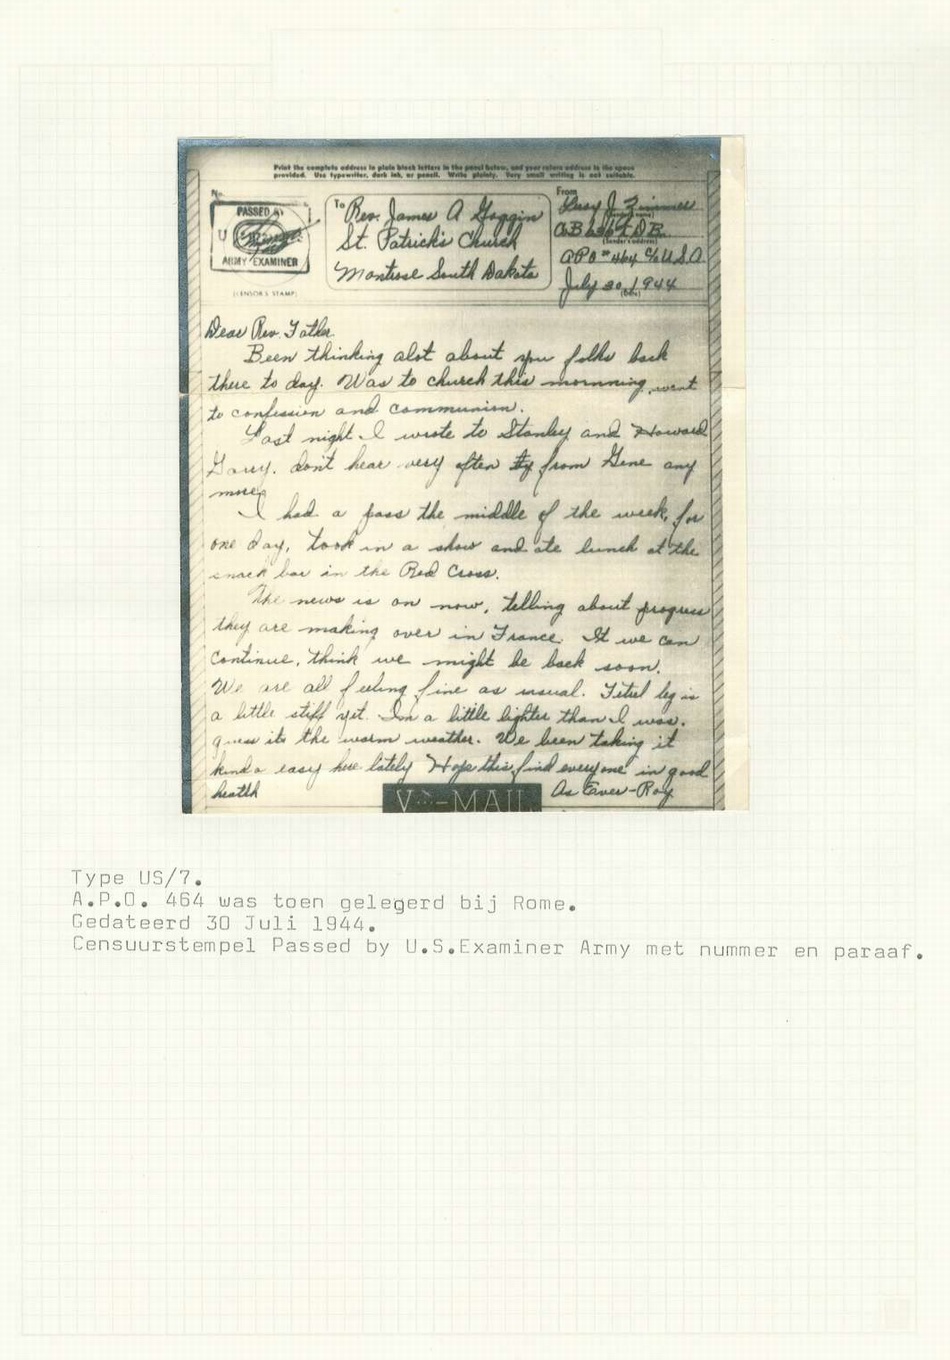 Print the complete address in plain block letters in the panel below, and your return address in the space
provided. Use typewriter, dark ink, or pencil. Write plainly. Very small writing is not suitable.
No.
PASSED BY
U
ARMY EXAMINER
(CENSOR'S STAMP)
To
Rev. James A Goggin
St. Patrick's Church
Montrose South Dakota
From
(Sender's address)
APO #464 c/o U.S.A
July 30, 1944
(Date)
Dear Rev. Father.
Been thinking alot about you folks back
there to day. Was to church this mornning, went
to confession and communion.
Last night I wrote to Stanley and Howard
don't hear very often from Gene any
more.
I had a pass the middle of the week, for
one day, took in a show and ate lunch at the
snack bar in the Red Cross.
The news is on now, telling about progress
they are making over in France. If we can
continue, think we might be back soon.
We are all feeling fine as usual. leg is
a little stiff yet. Im a little lighter than I was.
guess its the warm weather. We been taking it
kinda easy here lately Hope this find everyone in good
health
As Ever-Roy
V···-MAIL
Type US/7.
A.P.O. 464 was toen gelegerd bij Rome.
Gedateerd 30 Juli 1944.
Censuurstempel Passed by U.S.Examiner Army met nummer en paraaf.